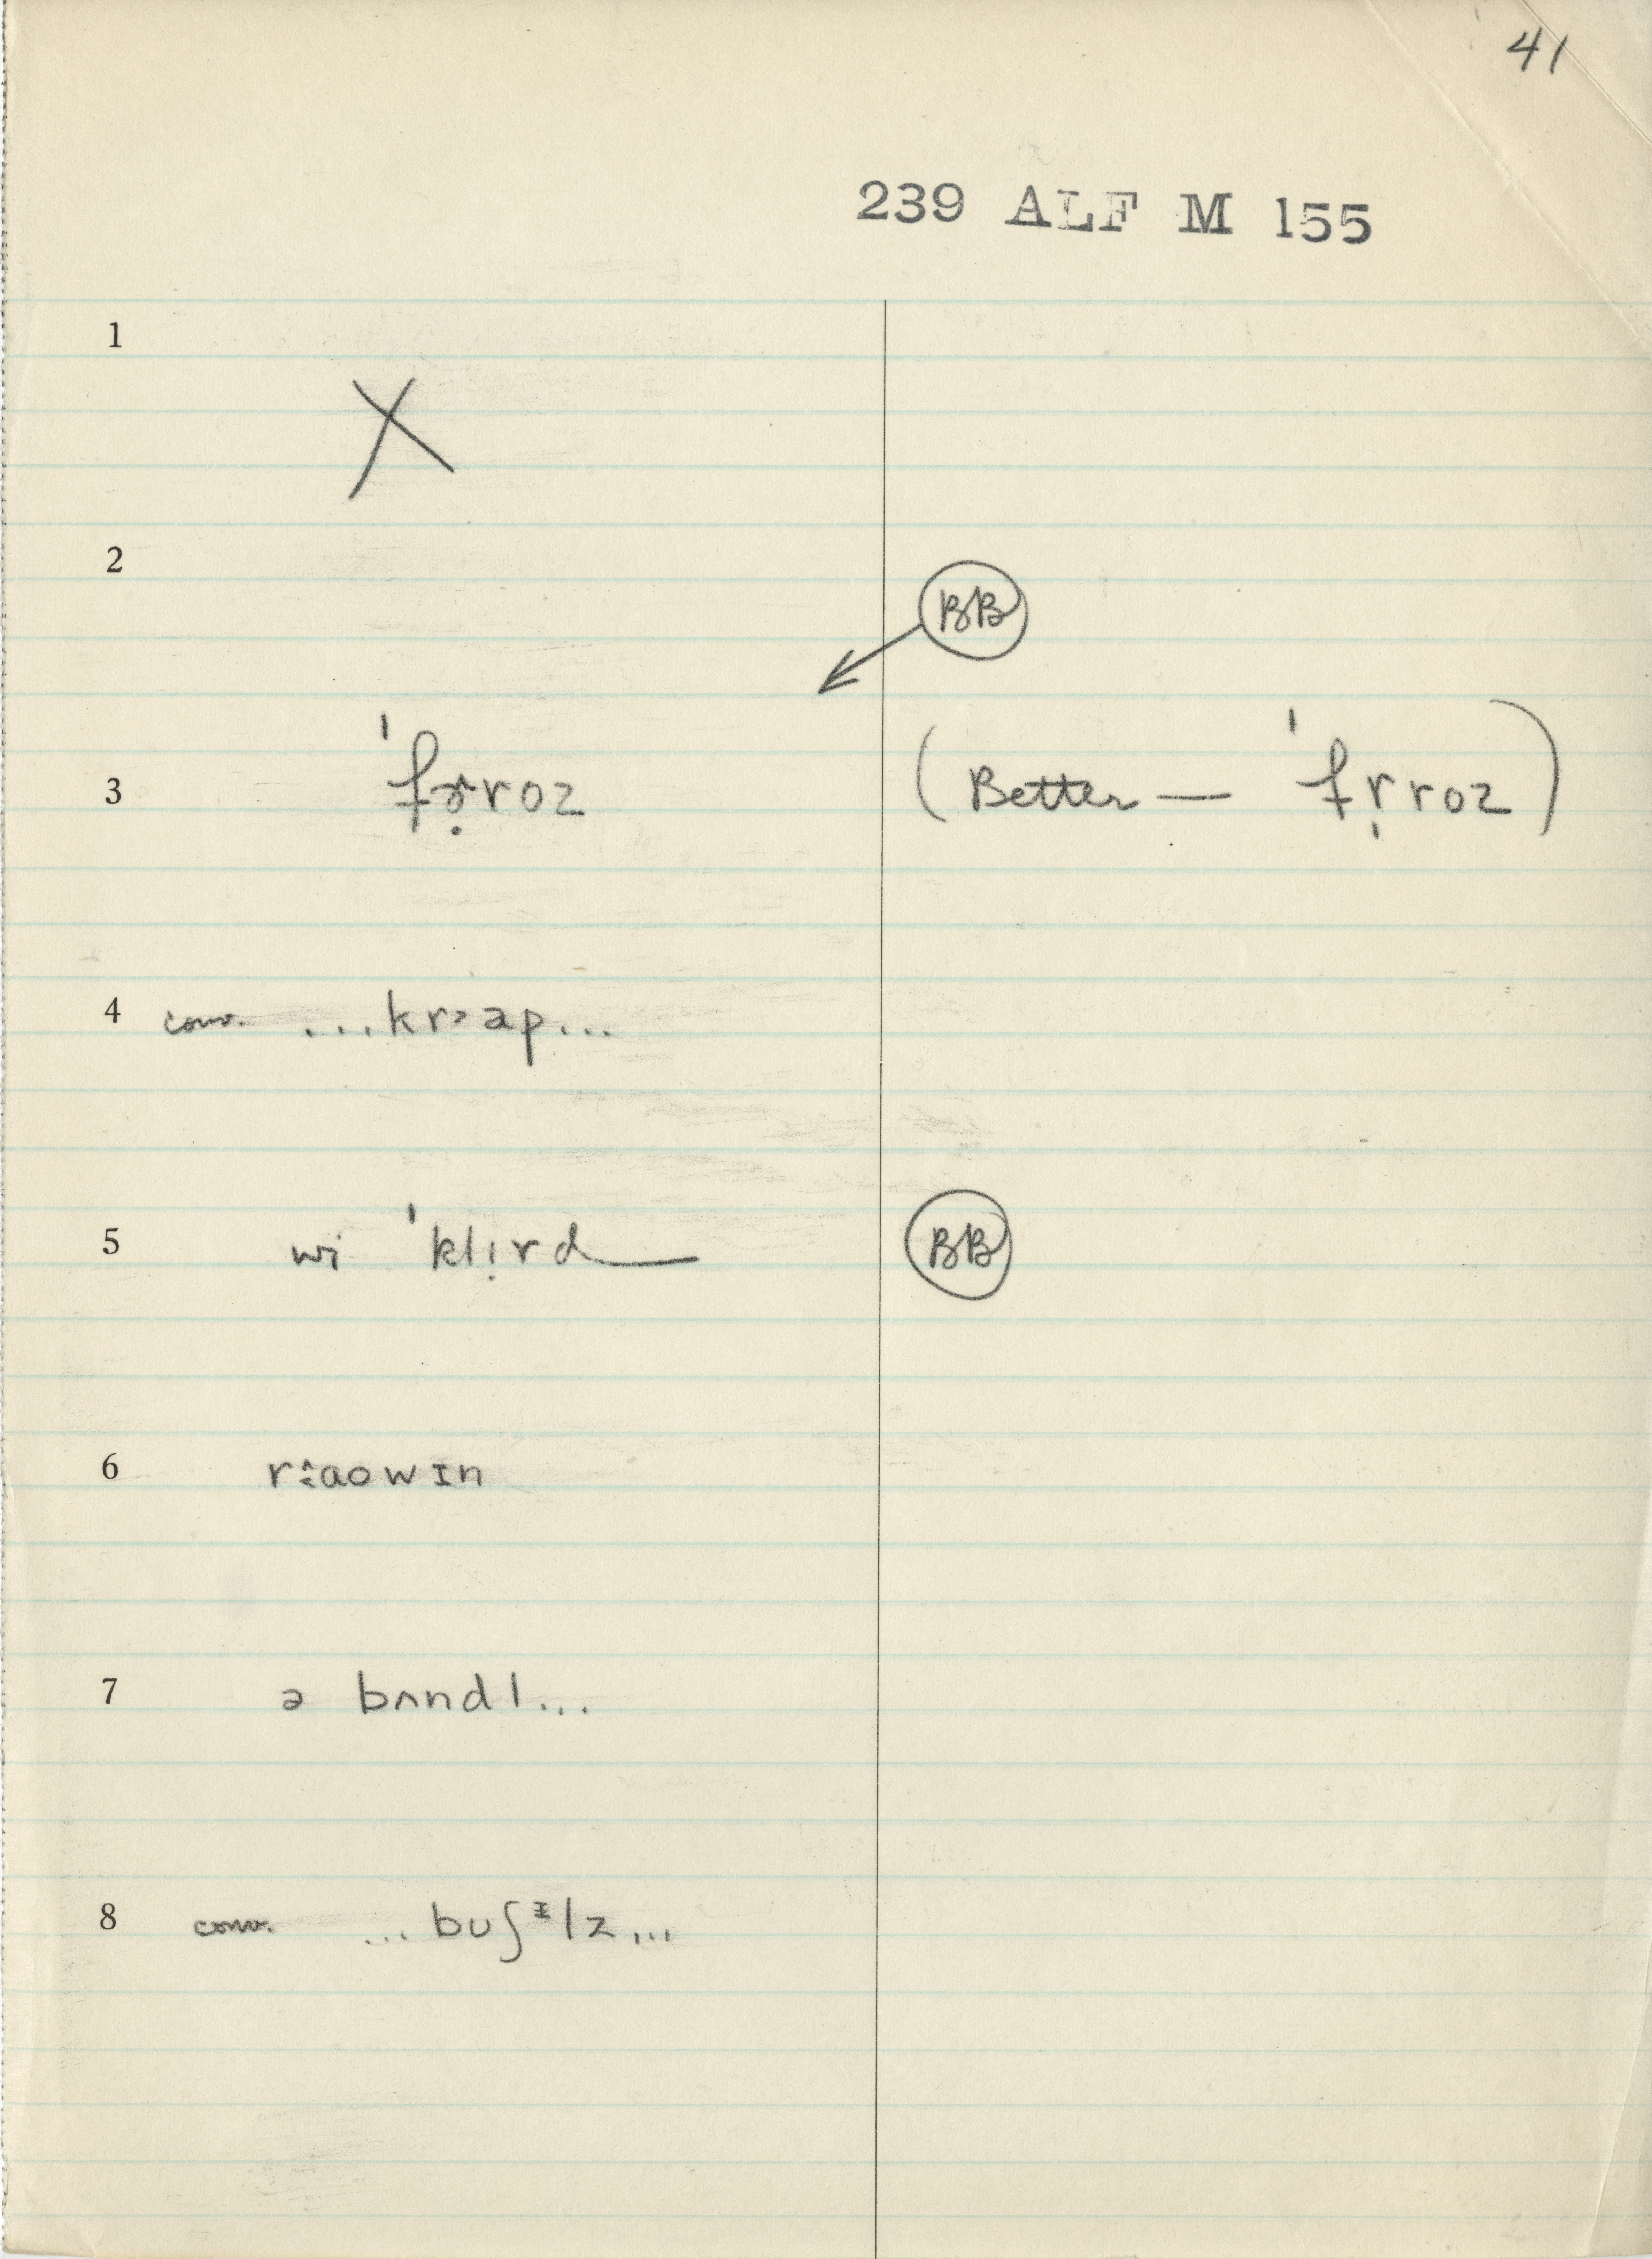 41
239 ALF M 155
1
X
2
BB
3 ˈfɚ̣roz (Better — ˈfr̩roz)
4 conv. ...kr˃ap...
5 wi ˈkl!rd BB
6
7 ə bʌndl...
8 conv. ...buʃᵻlz...